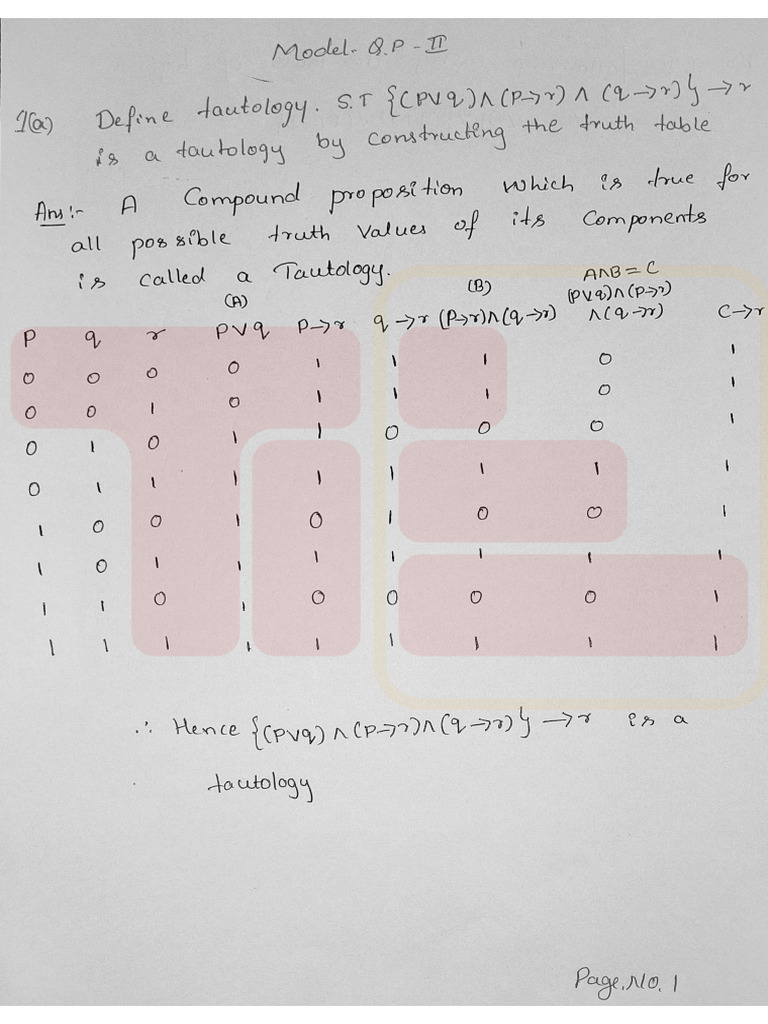 Model. Q.P - II
1(a) Define tautology. S.T {(P∨q)∧(P→r)∧(q→r)}→r
is a tautology by constructing the truth table
Ans:- A Compound proposition which is true for
all possible truth values of its Components
is called a Tautology.
(A) (B) A∧B = C
P q r P∨q P→r q→r (P→r)∧(q→r) (P∨q)∧(P→r) ∧(q→r) C→r
0 0 0 0 1 1 1 0 1
0 0 1 0 1 1 1 0 1
0 1 0 1 1 0 0 0 1
0 1 1 1 1 1 1 1 1
1 0 0 1 0 1 0 0 1
1 0 1 1 1 1 1 1 1
1 1 0 1 0 0 0 0 1
1 1 1 1 1 1 1 1 1
∴ Hence {(P∨q)∧(P→r)∧(q→r)}→r is a
tautology
Page.No. 1